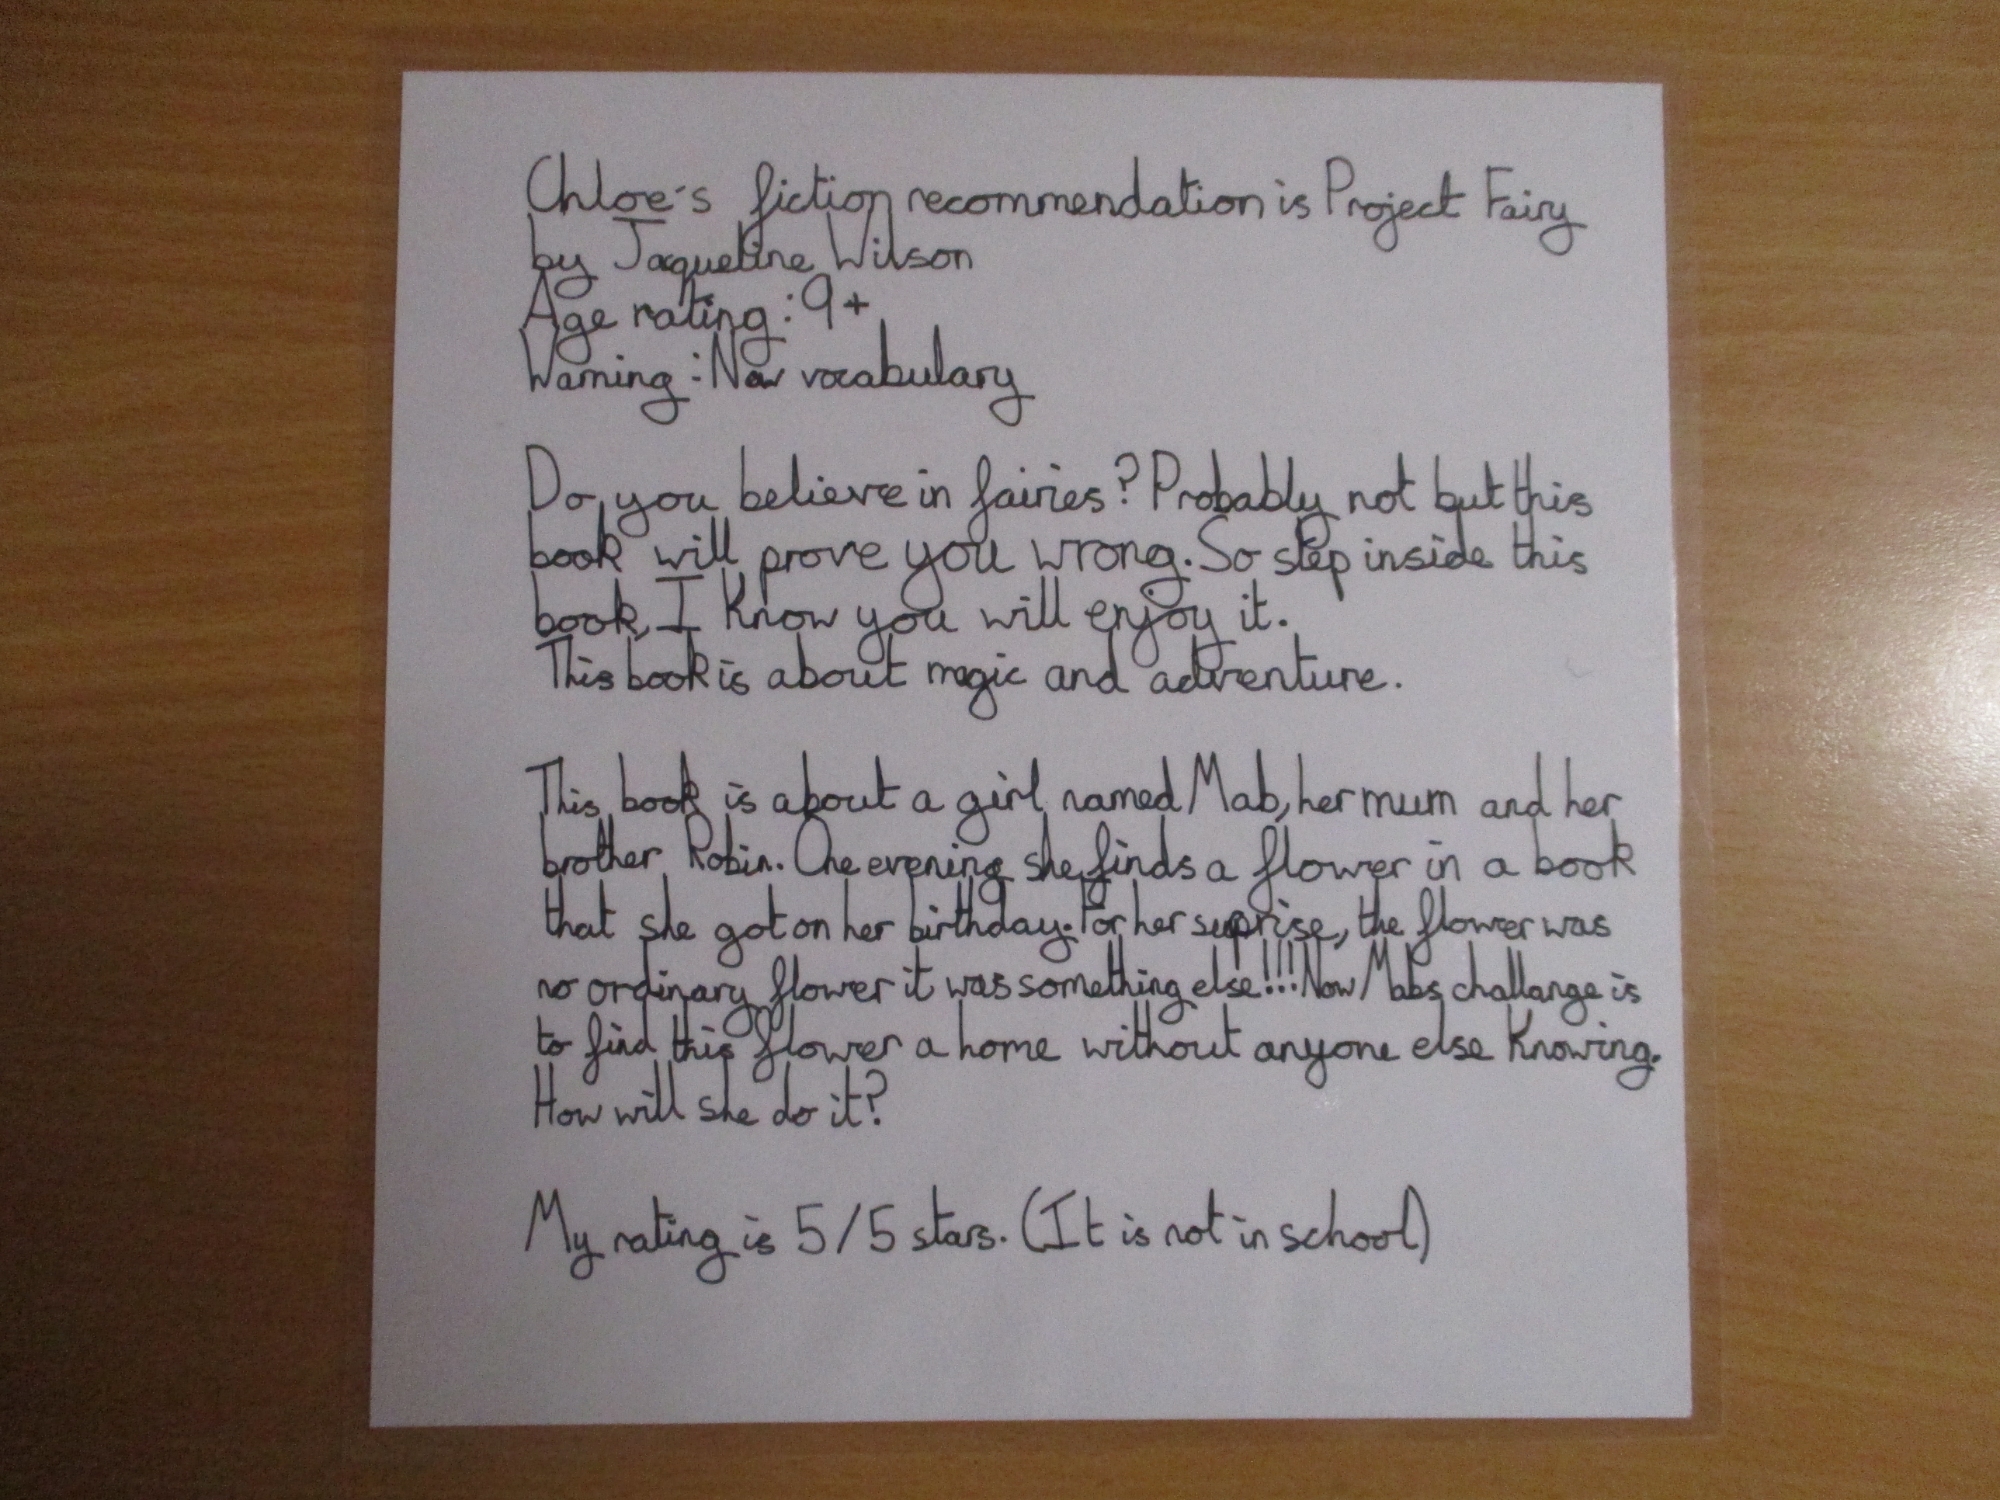 Chloe's fiction recommendation is Project Fairy
by Jaqueline Wilson
Age rating : 9+
Warning : New vocabulary
Do you believe in fairies? Probably not but this
book will prove you wrong. So step inside this
book, I know you will enjoy it.
This book is about magic and adventure.
This book is about a girl named Mab, her mum and her
brother Robin. One evening she finds a flower in a book
that she got on her birthday. For her suprise, the flower was
no ordinary flower it was something else!!! Now Mabs challange is
to find this flower a home without anyone else knowing.
How will she do it?
My rating is 5/5 stars. (It is not in school)